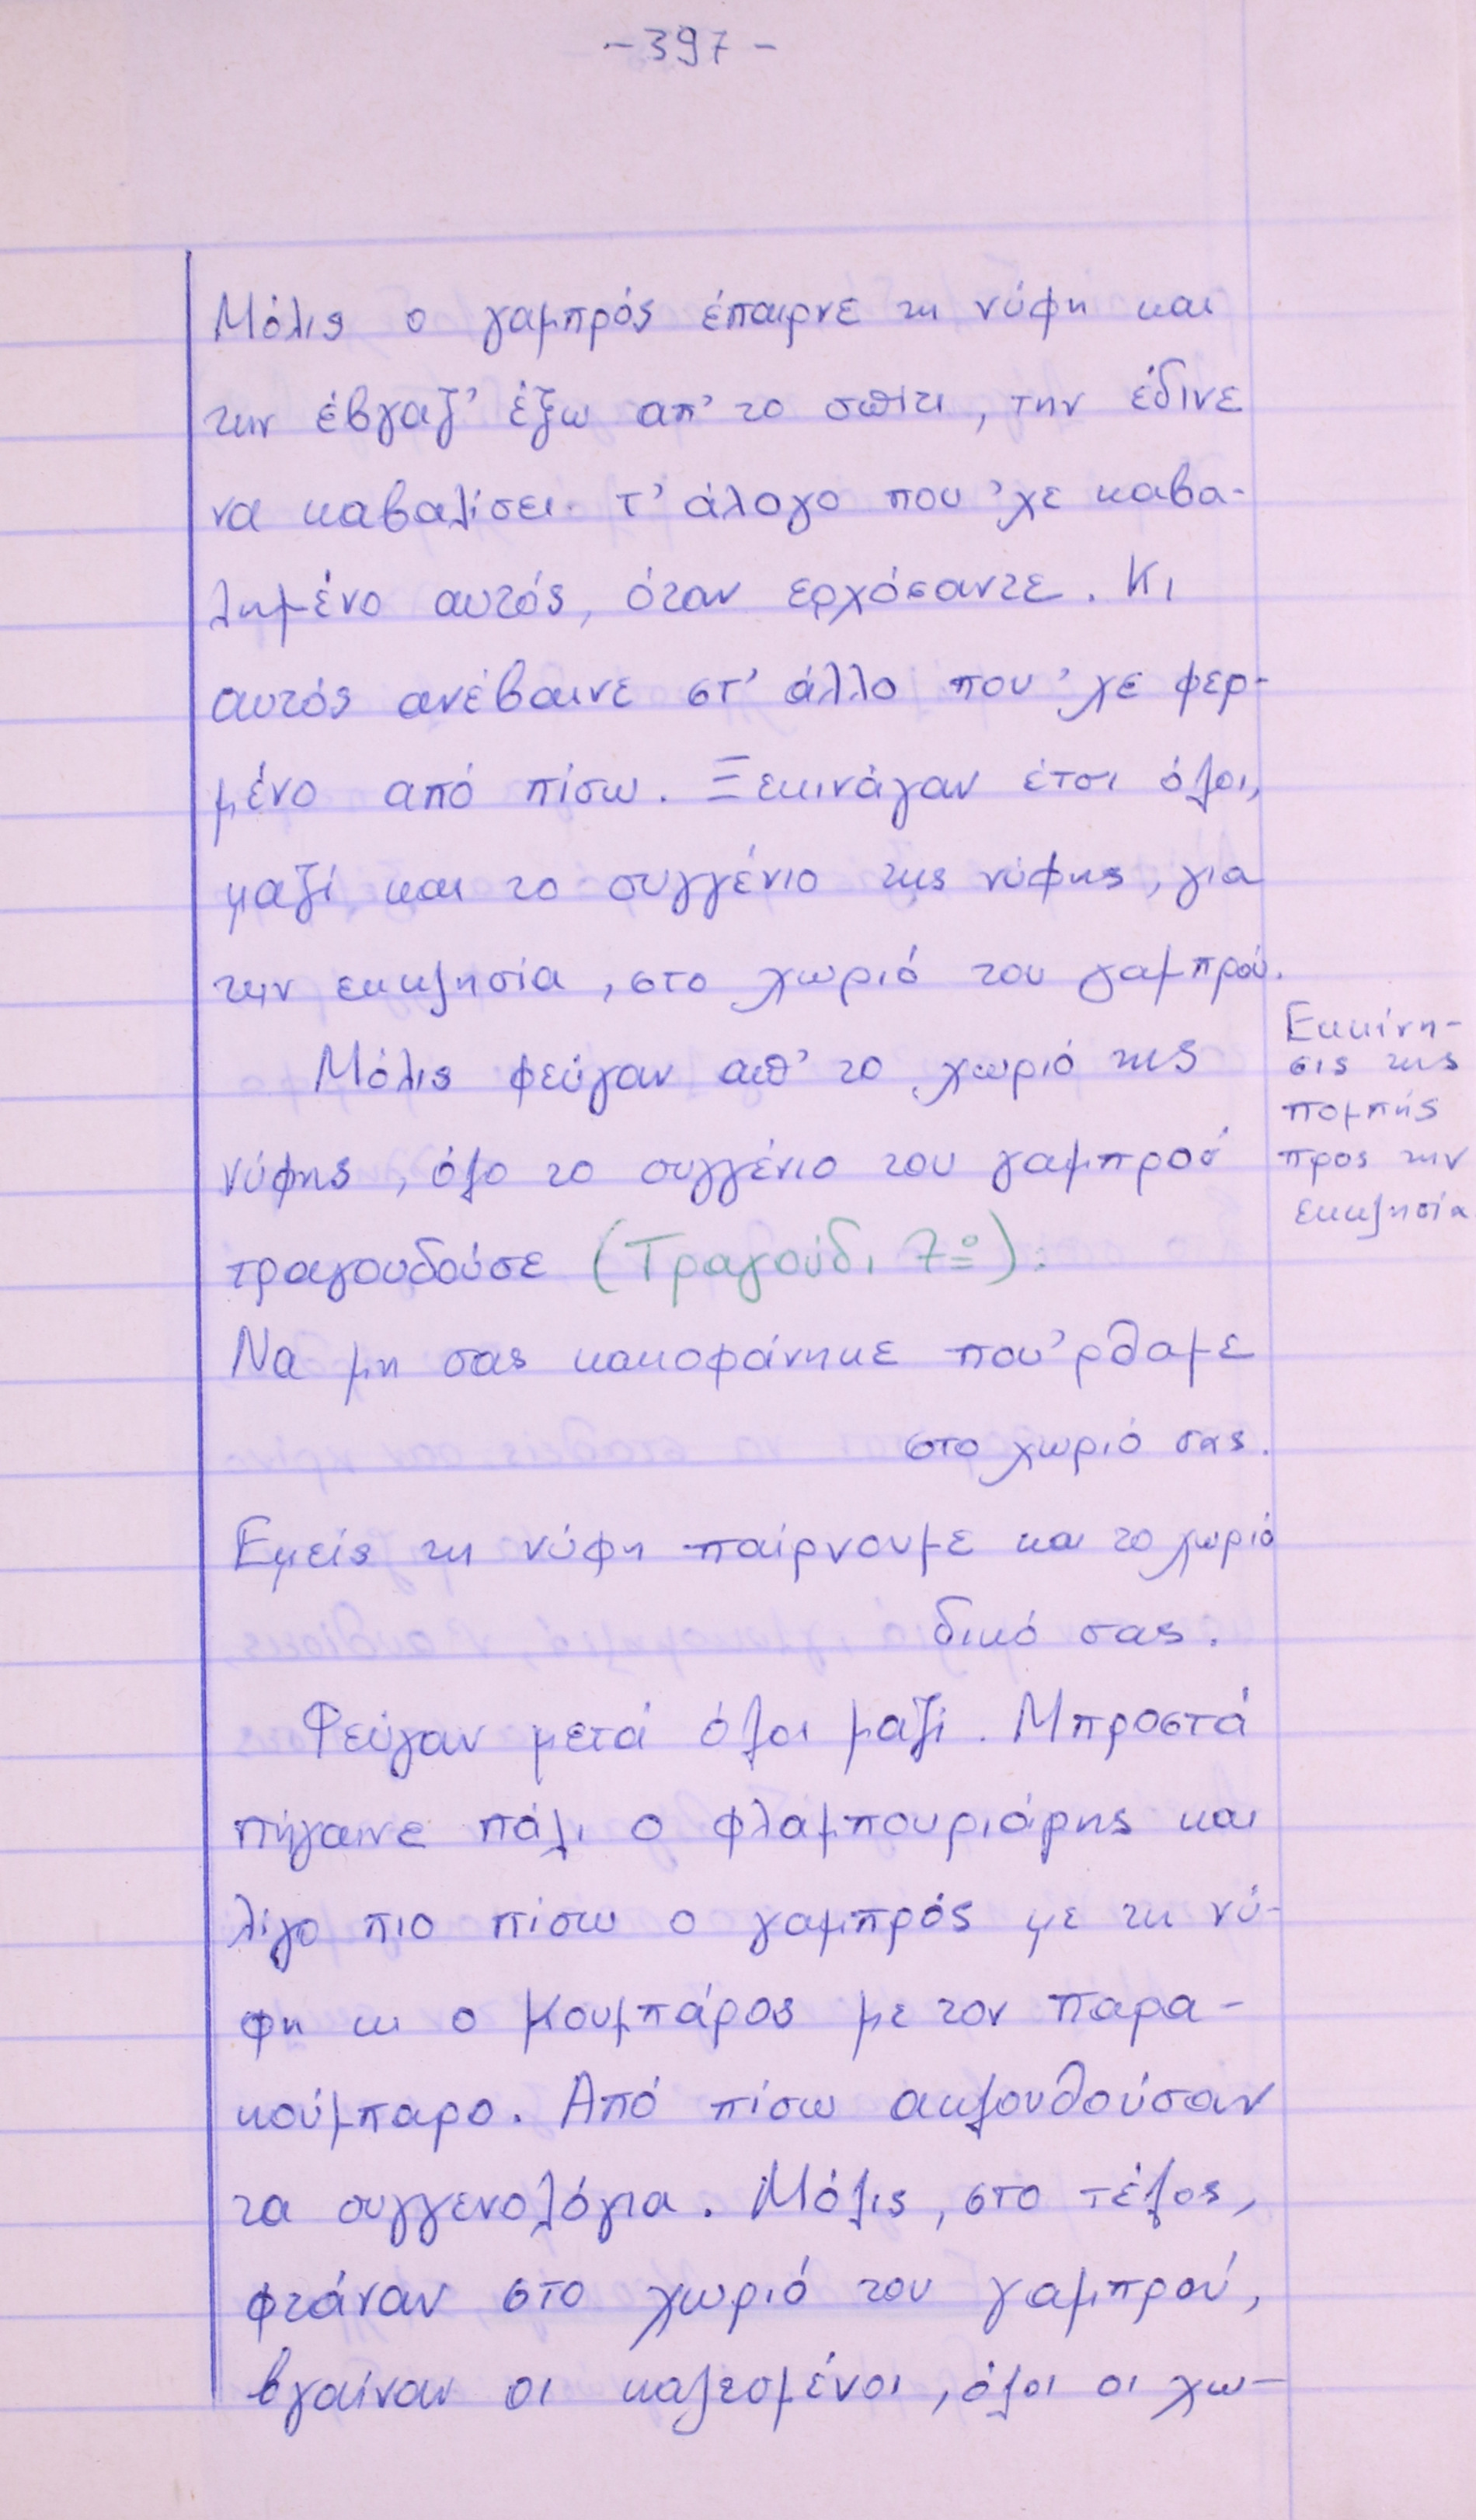 -397-
Μόλις ο γαμπρός έπαιρνε τη νύφη και
την έβγαζ' έξω απ' το σπίτι, την έδινε
να καβαλίσει τ' άλογο που 'χε καβα-
λημένο αυτός, όταν ερχόσαντε. Κι
αυτός ανέβαινε στ' άλλο που 'χε φερ-
μένο από πίσω. Ξεκινάγαν έτσι όλοι,
μαζί και το συγγένιο της νύφης, για
την εκκλησία, στο χωριό του γαμπρού.
Μόλις φεύγαν απ' το χωριό της
νύφης, όλο το συγγένιο του γαμπρού
τραγουδούσε (Τραγούδι 7º):
Να μη σας κακοφάνηκε που'ρθαμε
στο χωριό σας.
Εμείς τη νύφη παίρνουμε και το χωριό
δικό σας.
Φεύγαν μετά όλοι μαζί. Μπροστά
πήγαινε πάλι ο φλαμπουριάρης και
λίγο πιο πίσω ο γαμπρός με τη νύ-
φη κι ο κουμπάρος με τον παρα-
κούμπαρο. Από πίσω ακλουθούσαν
τα συγγενολόγια. Μόλις, στο τέλος,
φτάναν στο χωριό του γαμπρού,
βγαίναν οι καλεσμένοι, όλοι οι χω-
Εκκίνη-
σις της
πομπής
προς την
εκκλησία